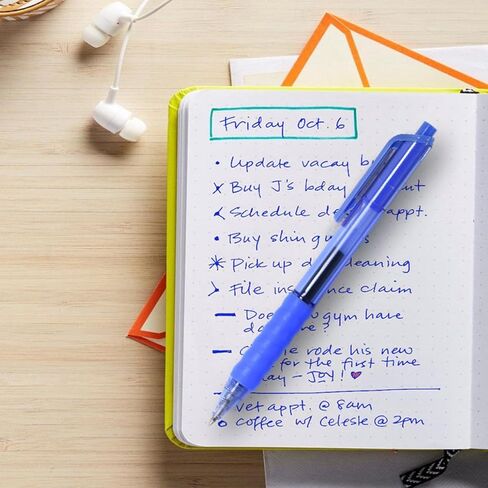 Friday Oct. 6
• Update vacay
x Buy J's bday
< Schedule appt.
• Buy shin
* Pick up cleaning
> File claim
— gym have
?
— rode his new
for the first time
— JOY! ♥
— vet appt. @ 8am
o coffee w/ Celeste @ 2pm